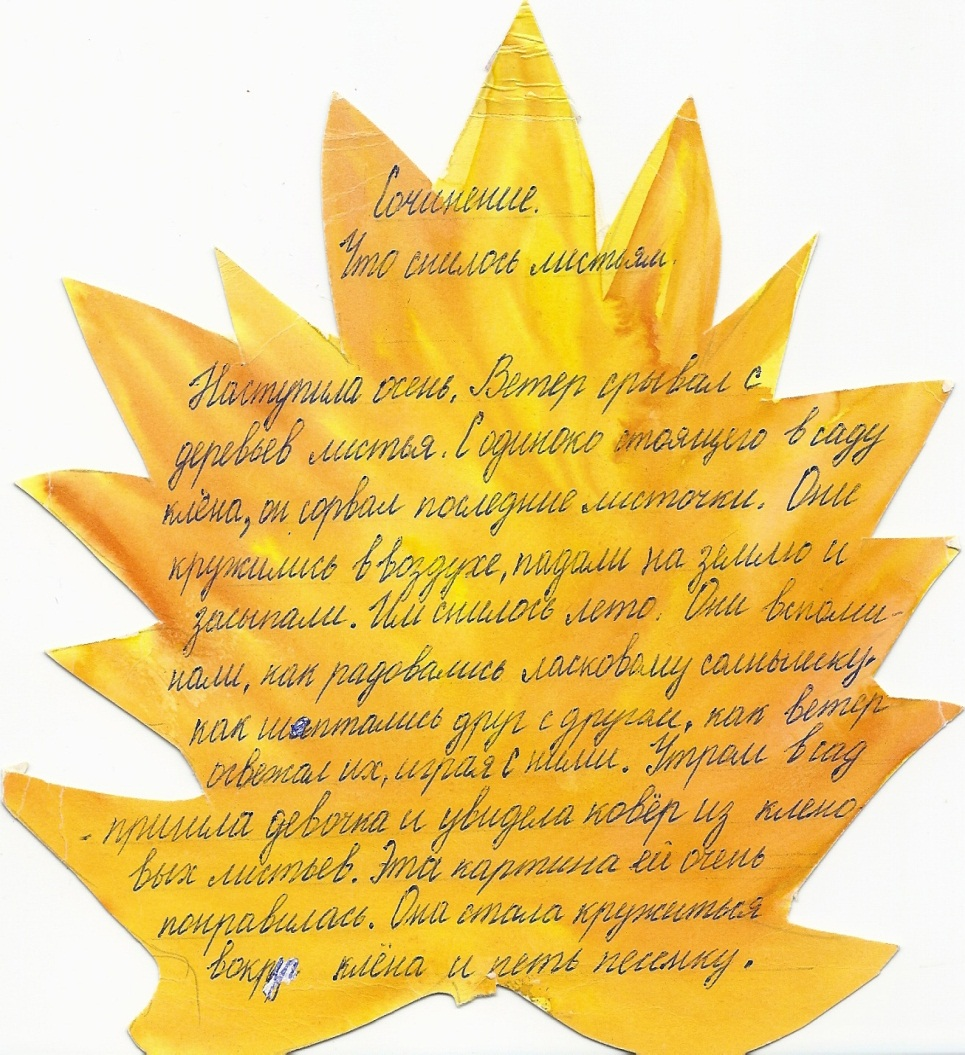 Сочинение.
Что снилось листьям.
Наступила осень. Ветер срывал с
деревьев листья. С одиноко стоящего в саду
клёна, он сорвал последние листочки. Они
кружились в воздухе, падали на землю и
засыпали. Им снилось лето. Они вспоми-
нали, как радовались ласковому солнышку,
как шептались друг с другом, как ветер
освежал их, играя с ними. Утром в сад
пришла девочка и увидела ковёр из клено-
вых листьев. Эта картина ей очень
понравилась. Она стала кружиться
вокруг клёна и петь песенку.